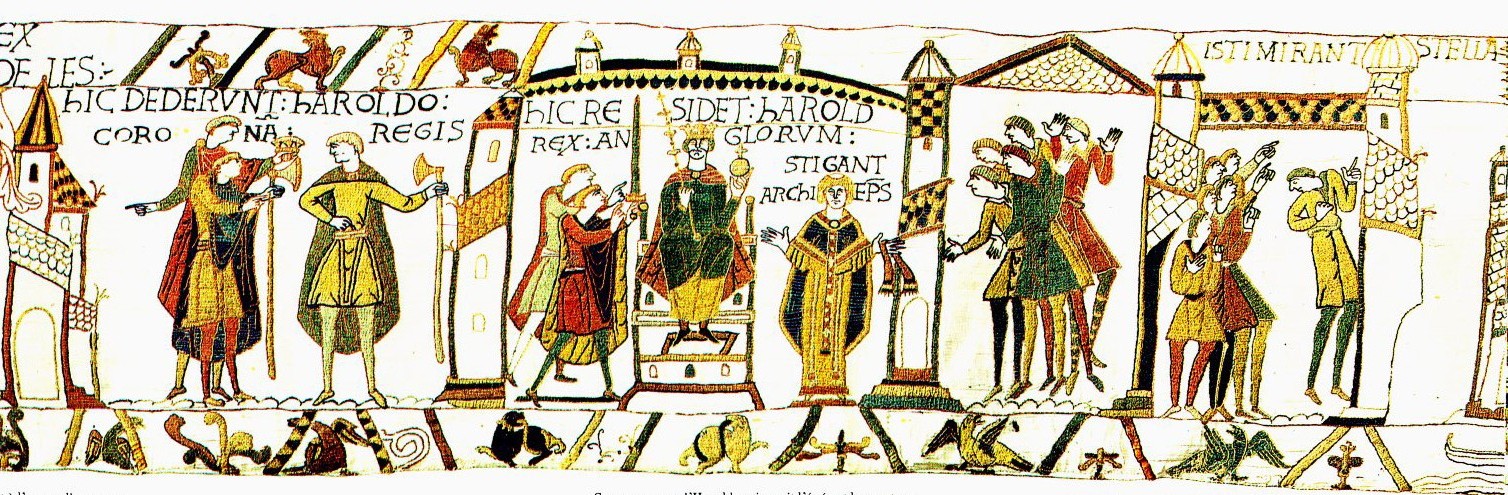 EX
DE LES:
hIC DEDERVNT: hAROLDO:
CORO NÃ: REGIS
hIC RE SIDET: hAROLD
REX: AN GLORVM:
STIGANT
ARChI EPS
ISTI MIRANT STELLA